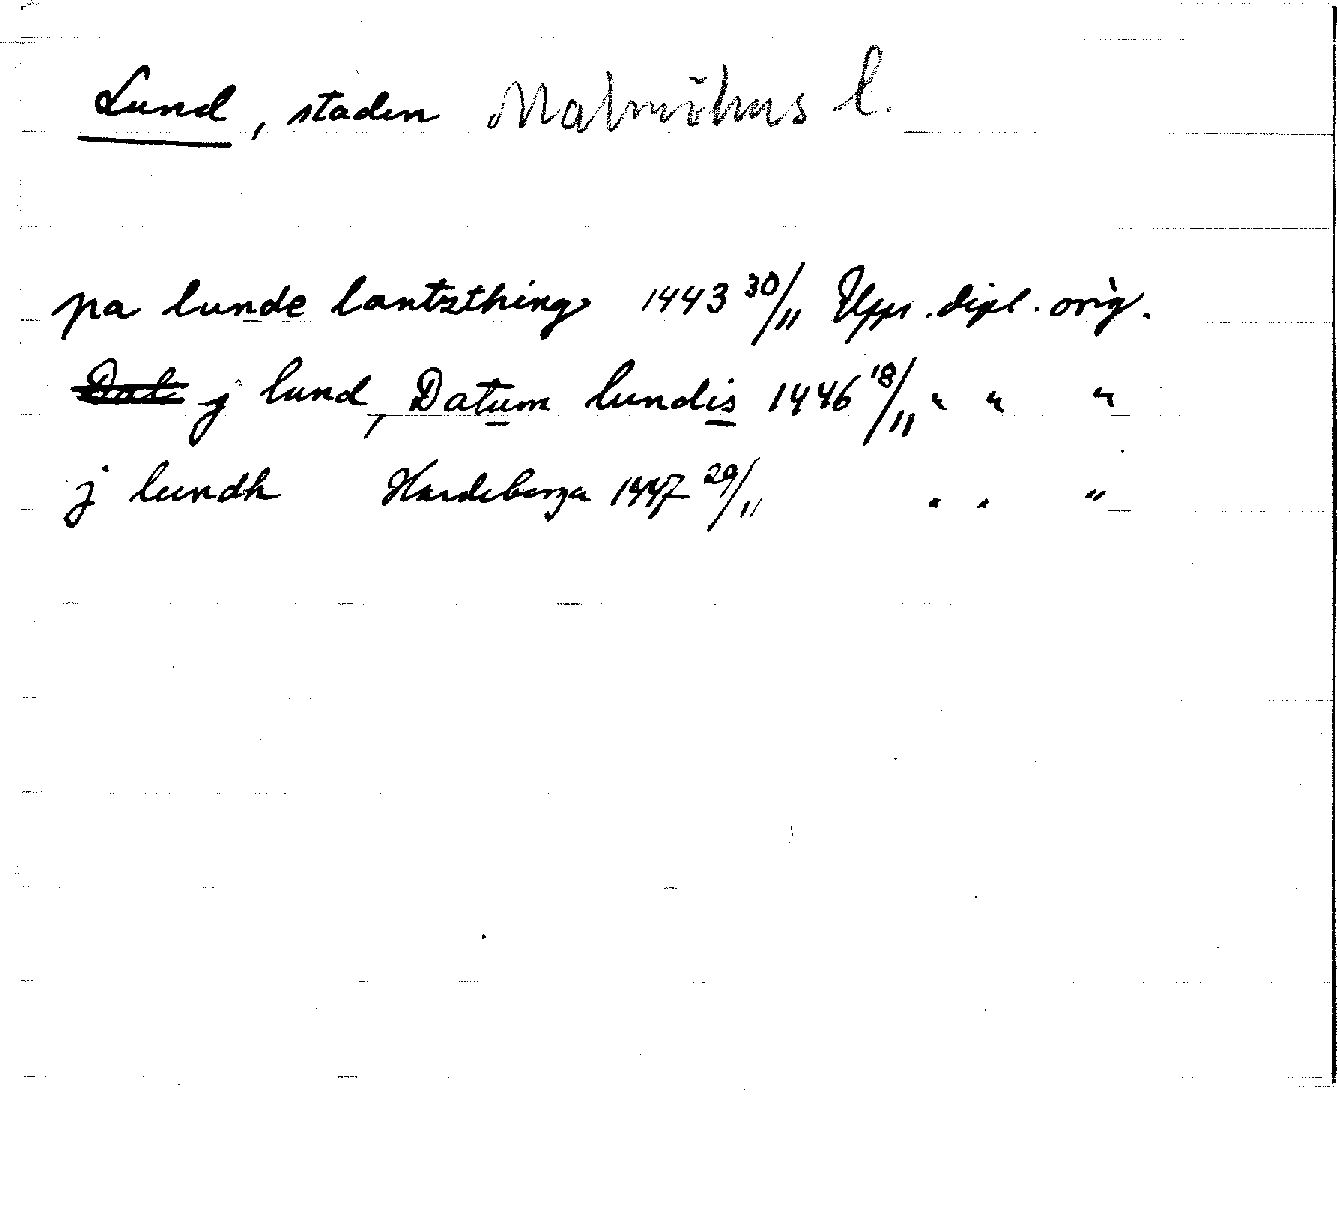 Lund, staden Malmöhus l.
pa lunde lantzthing 1443 30/11 Upps. dipl. orig.
j lund, Datum lundis 1446 18/11 " " "
j lundh Hardeberga 1447 29/11 " " "